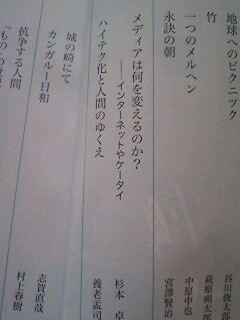 地球へのピクニック 谷川俊太郎
竹 萩原朔太郎
一つのメルヘン 中原中也
永訣の朝 宮澤賢治
メディアは何を変えるのか？
――インターネットやケータイ 杉本 卓
ハイテク化と人間のゆくえ 養老孟司
城の崎にて 志賀直哉
カンガルー日和 村上春樹
抗争する人間